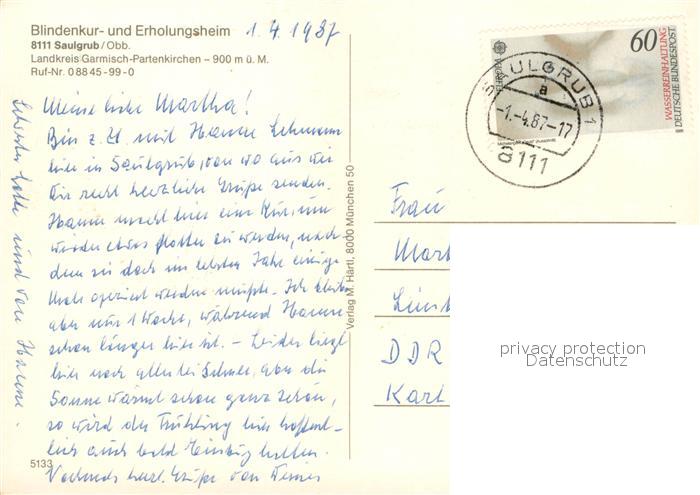 Blindenkur- und Erholungsheim
8111 Saulgrub/Obb.
Landkreis Garmisch-Partenkirchen – 900 m ü. M.
Ruf-Nr. 0 88 45 - 99 - 0
1.4.1987
Meine liebe Martha!
Bin z. Zt. mit Hanne Lehmann
hier in Saulgrub, von wo aus wir
Dir recht herzliche Grüße senden.
Hanne macht hier eine Kur, um
wieder etwas flotter zu werden, nach
dem sie doch im letzten Jahr einige
Male operiert werden mußte. Ich bleibe
aber nur 1 Woche, während Hanne
schon länger hier ist. – Leider liegt
hier noch allerlei Schnee, aber die
Sonne wärmt schon ganz schön,
so wird der Frühling hier hoffent-
lich auch bald Einzug halten.
Nochmals herzl. Grüße von Deiner
und von Hanne.
5133
Verlag M. Härtl, 8000 München 50
EUROPA
60
WASSERREINHALTUNG
DEUTSCHE BUNDESPOST
SAULGRUB 1
a
-1.-4.87-17
8111
Frau
DDR
privacy protection
Datenschutz